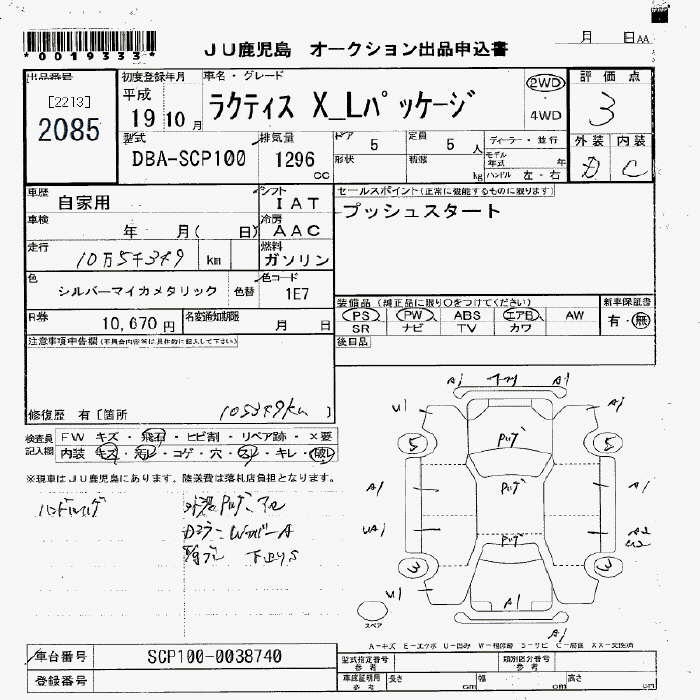 *0019333*
JU鹿児島 オークション出品申込書
月 日AA
出品番号
[2213]
2085
初度登録年月
平成
19 10 月
車名・グレード
ラクティス X_Lパッケージ
2WD
4WD
評価点
3
外装 内装
D C
型式
DBA-SCP100
排気量
1296
cc
ドア 5
定員 5 人
形状
積載 kg
ディーラー・並行
モデル年式 年
ハンドル 左・右
車歴
自家用
シフト
IAT
車検
年 月( 日)
冷房
AAC
走行
10万5千349 km
燃料
ガソリン
色
シルバーマイカメタリック
色替
色コード
1E7
R券
10,670円
名変通知期限
月 日
セールスポイント(正常に機能するものに限ります)
プッシュスタート
装備品(純正品に限り○をつけてください)
PS PW ABS エアB AW
SR ナビ TV カワ
新車保証書
有・無
後日品
注意事項申告欄(不具合内容等は具体的に記入して下さい)
修復歴 有[箇所 105349km ]
検査員記入欄
FW キズ・飛石・ヒビ割・リペア跡・X要
内装 キズ・汚レ・コゲ・穴・スレ・キレ・破レ
※現車はJU鹿児島にあります。陸送費は落札店負担となります。
A1 A1
U1 A1
5 5
A1 A1
UA1 A2
3 3
U1
A1
A1
スペア
A-キズ E-エクボ U-凹み W-補修跡 S-サビ C-腐食 XX-交換済
車台番号
SCP100-0038740
登録番号
型式指定番号
参考
類別区分番号
参考
車庫証明用
参考
長さ cm
幅 cm
高さ cm